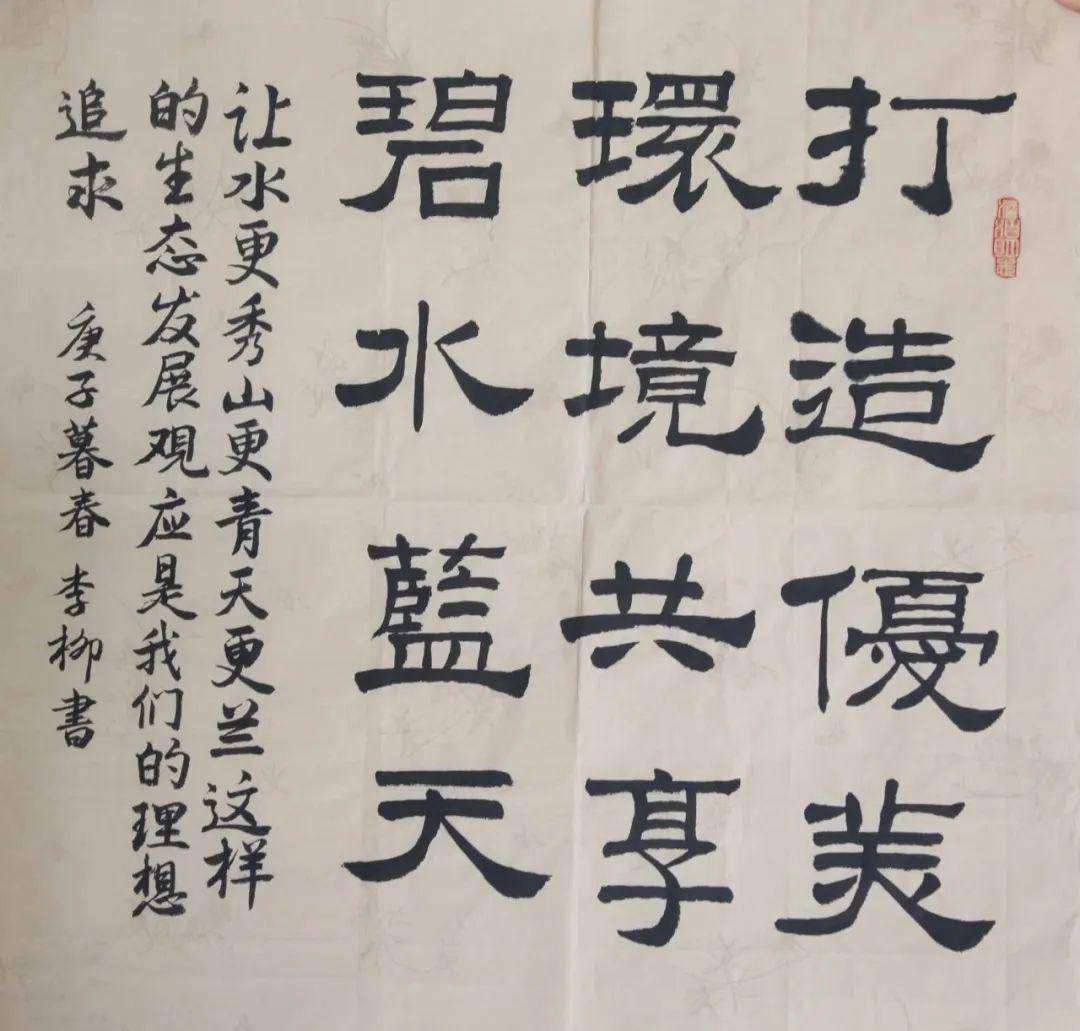 打造優美
環境共享
碧水藍天
让水更秀山更青天更兰这样
的生态发展观应是我们的理想
追求 庚子暮春 李柳書